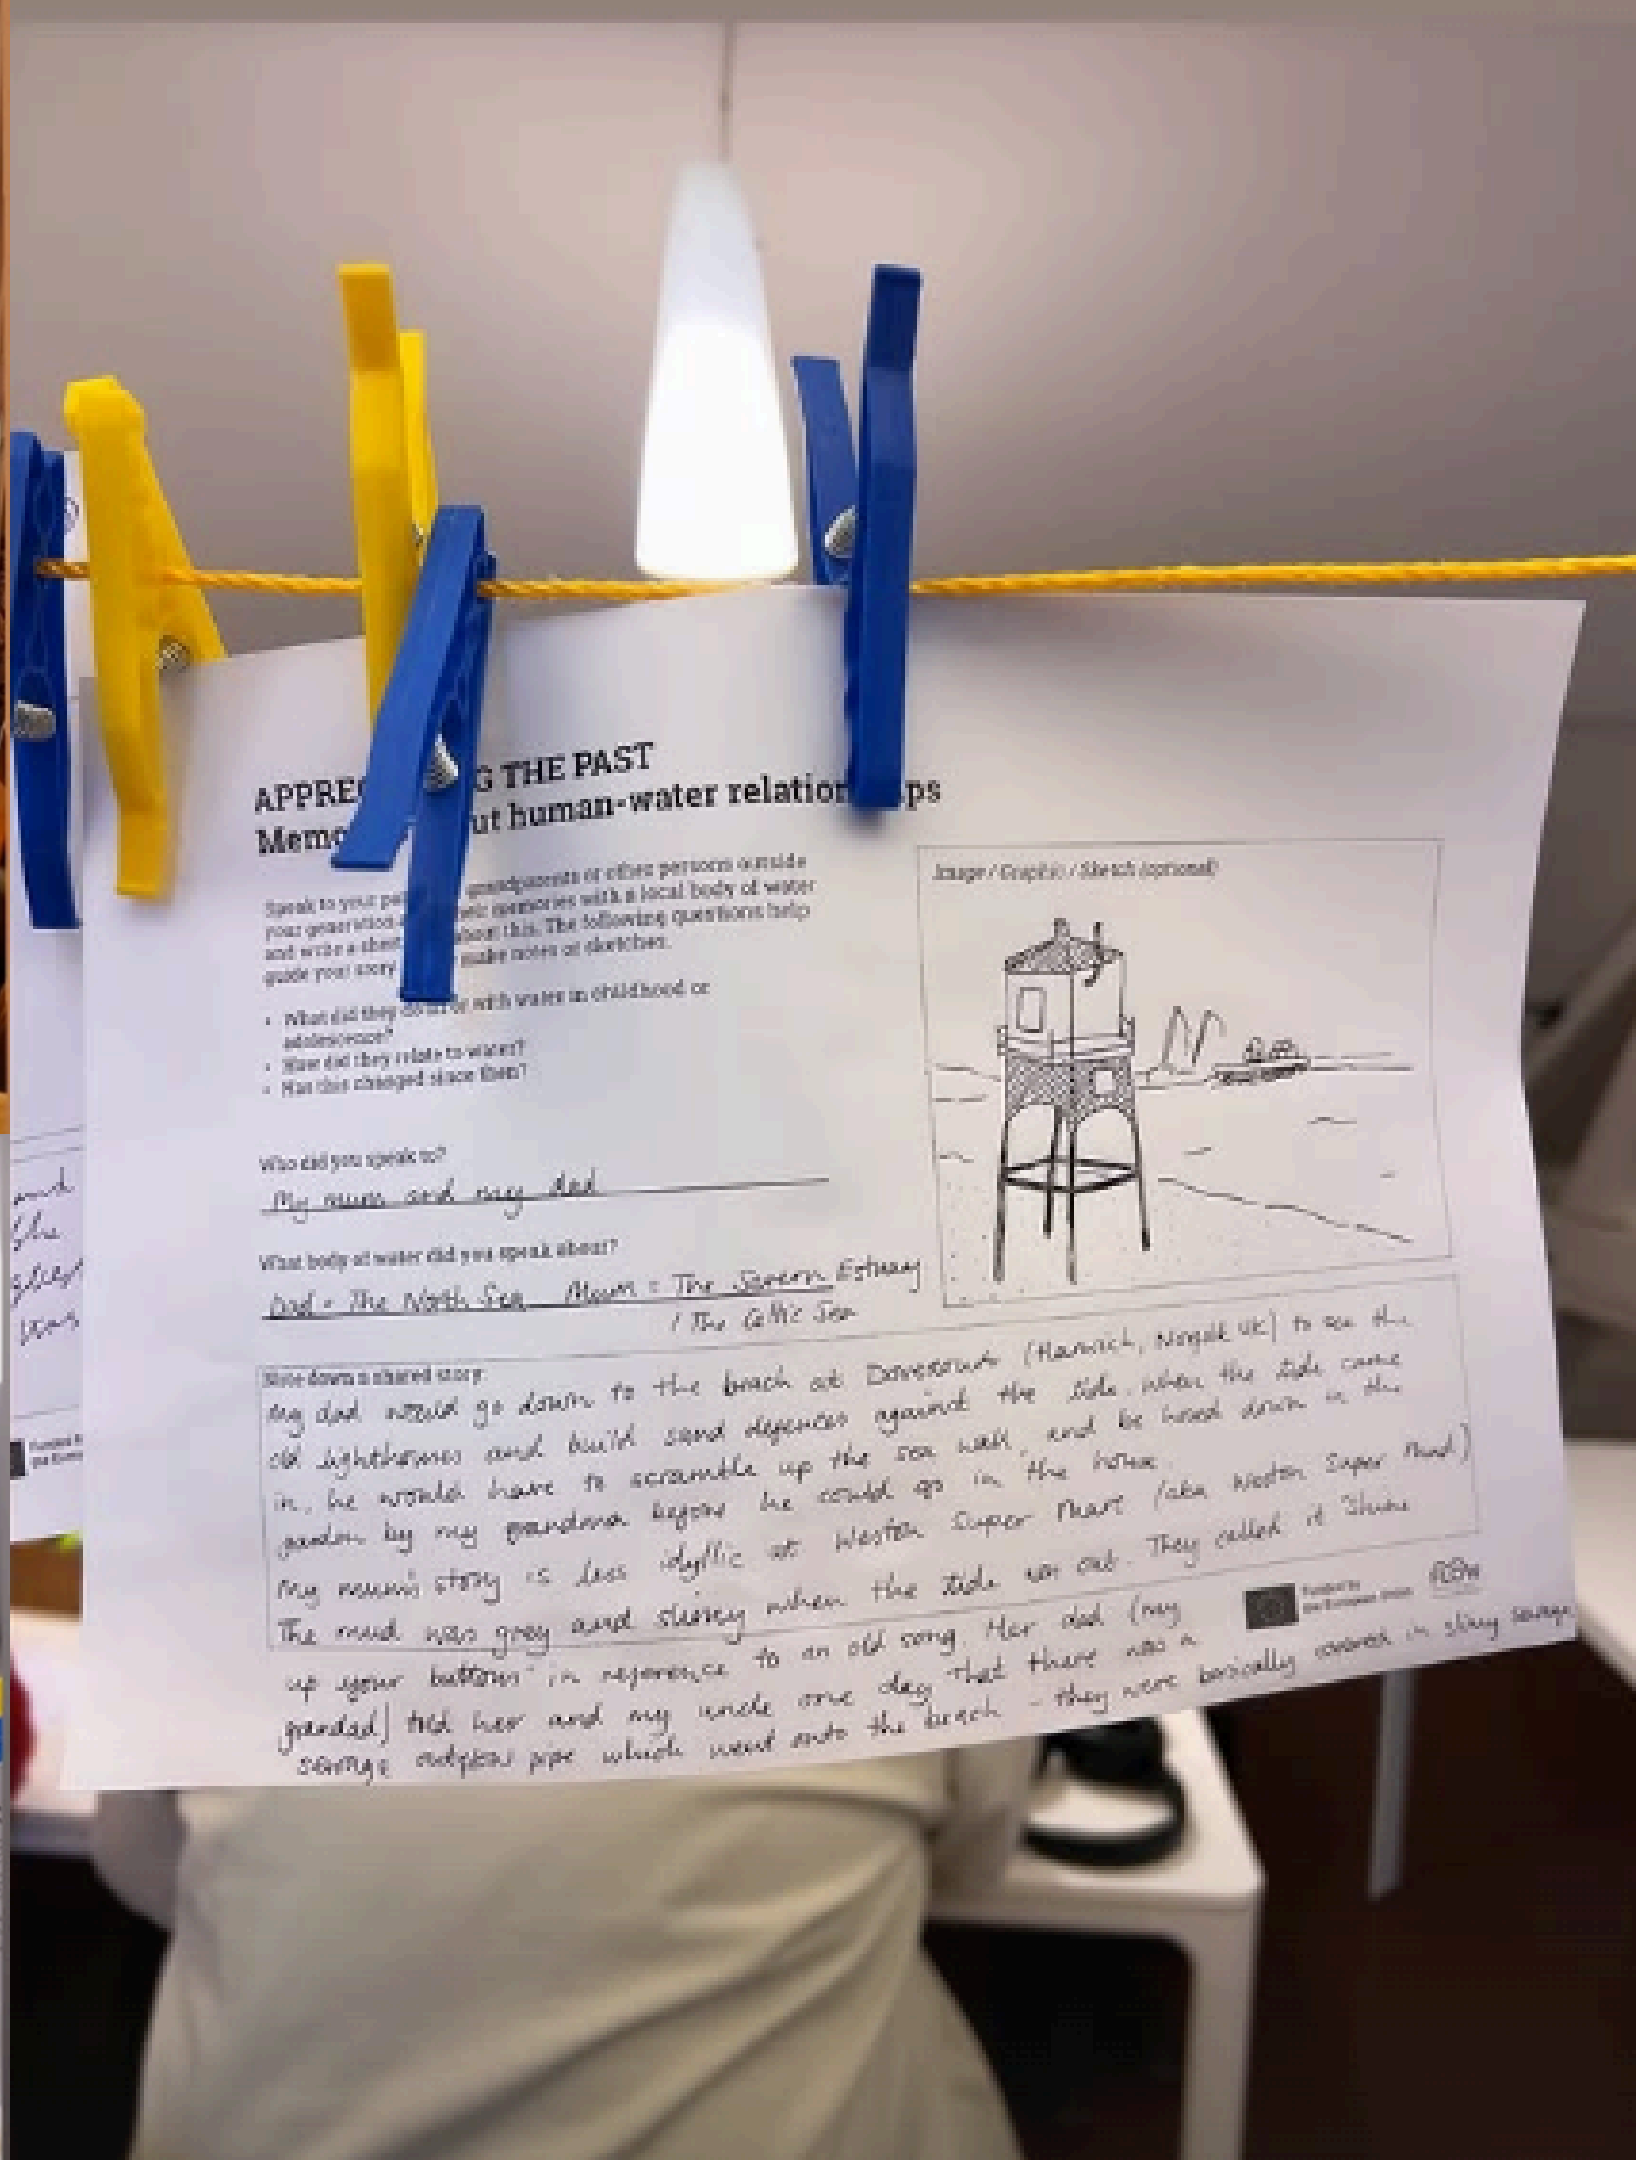 APPRE G THE PAST
Memo ut human-water relation ps
Speak to your pa grandparents or other persons outside
your generation their memories with a local body of water
and write a short about this. The following questions help
guide your story make notes or sketches.
• What did they do in or with water in childhood or
adolescence?
• How did they relate to water?
• Has this changed since then?
Image / Graphic / Sketch (optional)
Who did you speak to?
My mum and my dad
What body of water did you speak about?
Dad = The North Sea Mum = The Severn Estuary
/ The Celtic Sea
Note down a shared story:
My dad would go down to the beach at (Harwich, Norfolk UK) to see the
old lighthouses and build sand defences against the tide. When the tide came
in, he would have to scramble up the sea wall, and be hosed down in the
garden by my grandma before he could go in the house.
My mum's story is less idyllic at Weston Super Mare (aka Weston Super Mud)
The mud was grey and slimey when the tide was out. They called it "Shine
up your buttons" in reference to an old song. Her dad (my
grandad) told her and my uncle one day that there was a
sewage outflow pipe which went onto the beach - they were basically covered in slimy sewage
Funded by
the European Union
FLOW
and
the
was
Funded b
the Europe